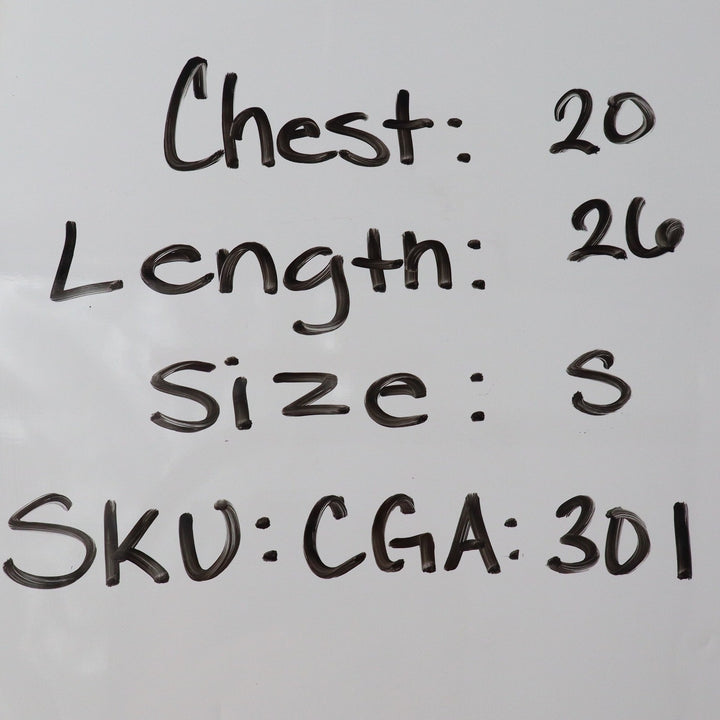 Chest: 20
Length: 26
Size: S
SKU: CGA: 301